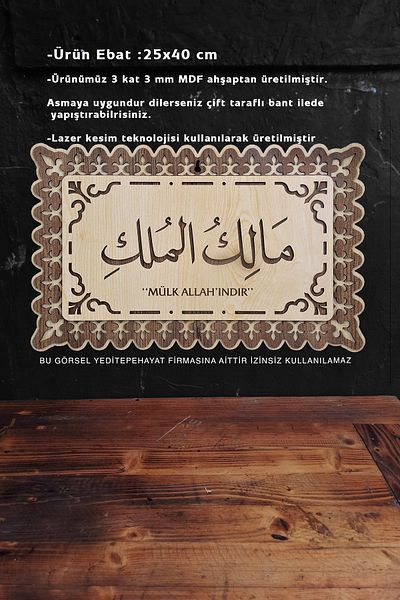 -Ürün Ebat :25x40 cm
-Ürünümüz 3 kat 3 mm MDF ahşaptan üretilmiştir.
Asmaya uygundur dilerseniz çift taraflı bant ilede
yapıştırabilirsiniz.
-Lazer kesim teknolojisi kullanılarak üretilmiştir
مَالِكُ الْمُلْكِ
''MÜLK ALLAH'INDIR''
BU GÖRSEL YEDİTEPEHAYAT FİRMASINA AİTTİR İZİNSİZ KULLANILAMAZ